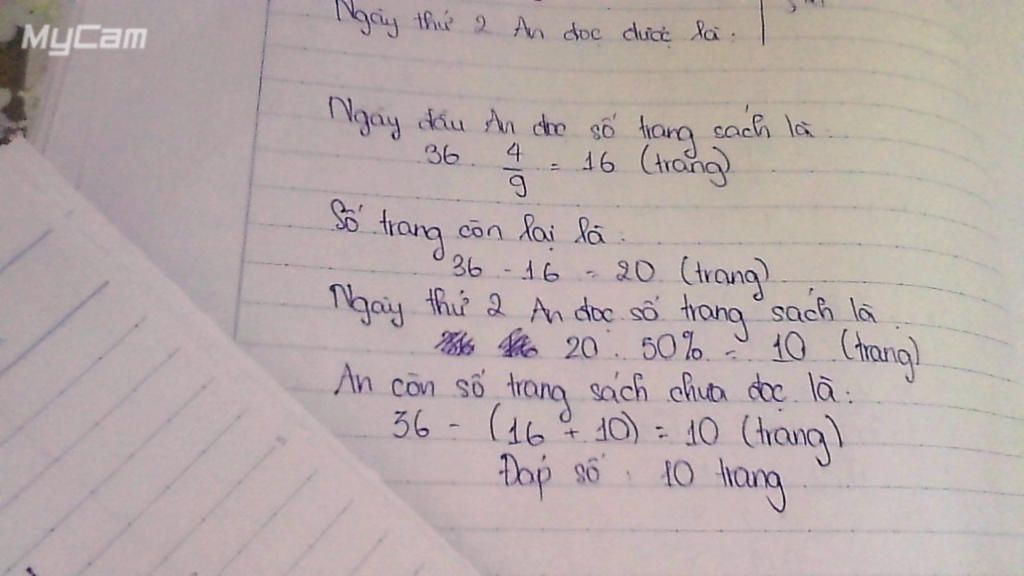 MyCam
Ngày thứ 2 An đọc được là :
Ngày đầu An đọc số trang sách là
36 . 4/9 = 16 (trang)
Số trang còn lại là :
36 - 16 = 20 (trang)
Ngày thứ 2 An đọc số trang sách là
20 . 50% = 10 (trang)
An còn số trang sách chưa đọc là :
36 - (16 + 10) = 10 (trang)
Đáp số : 10 trang